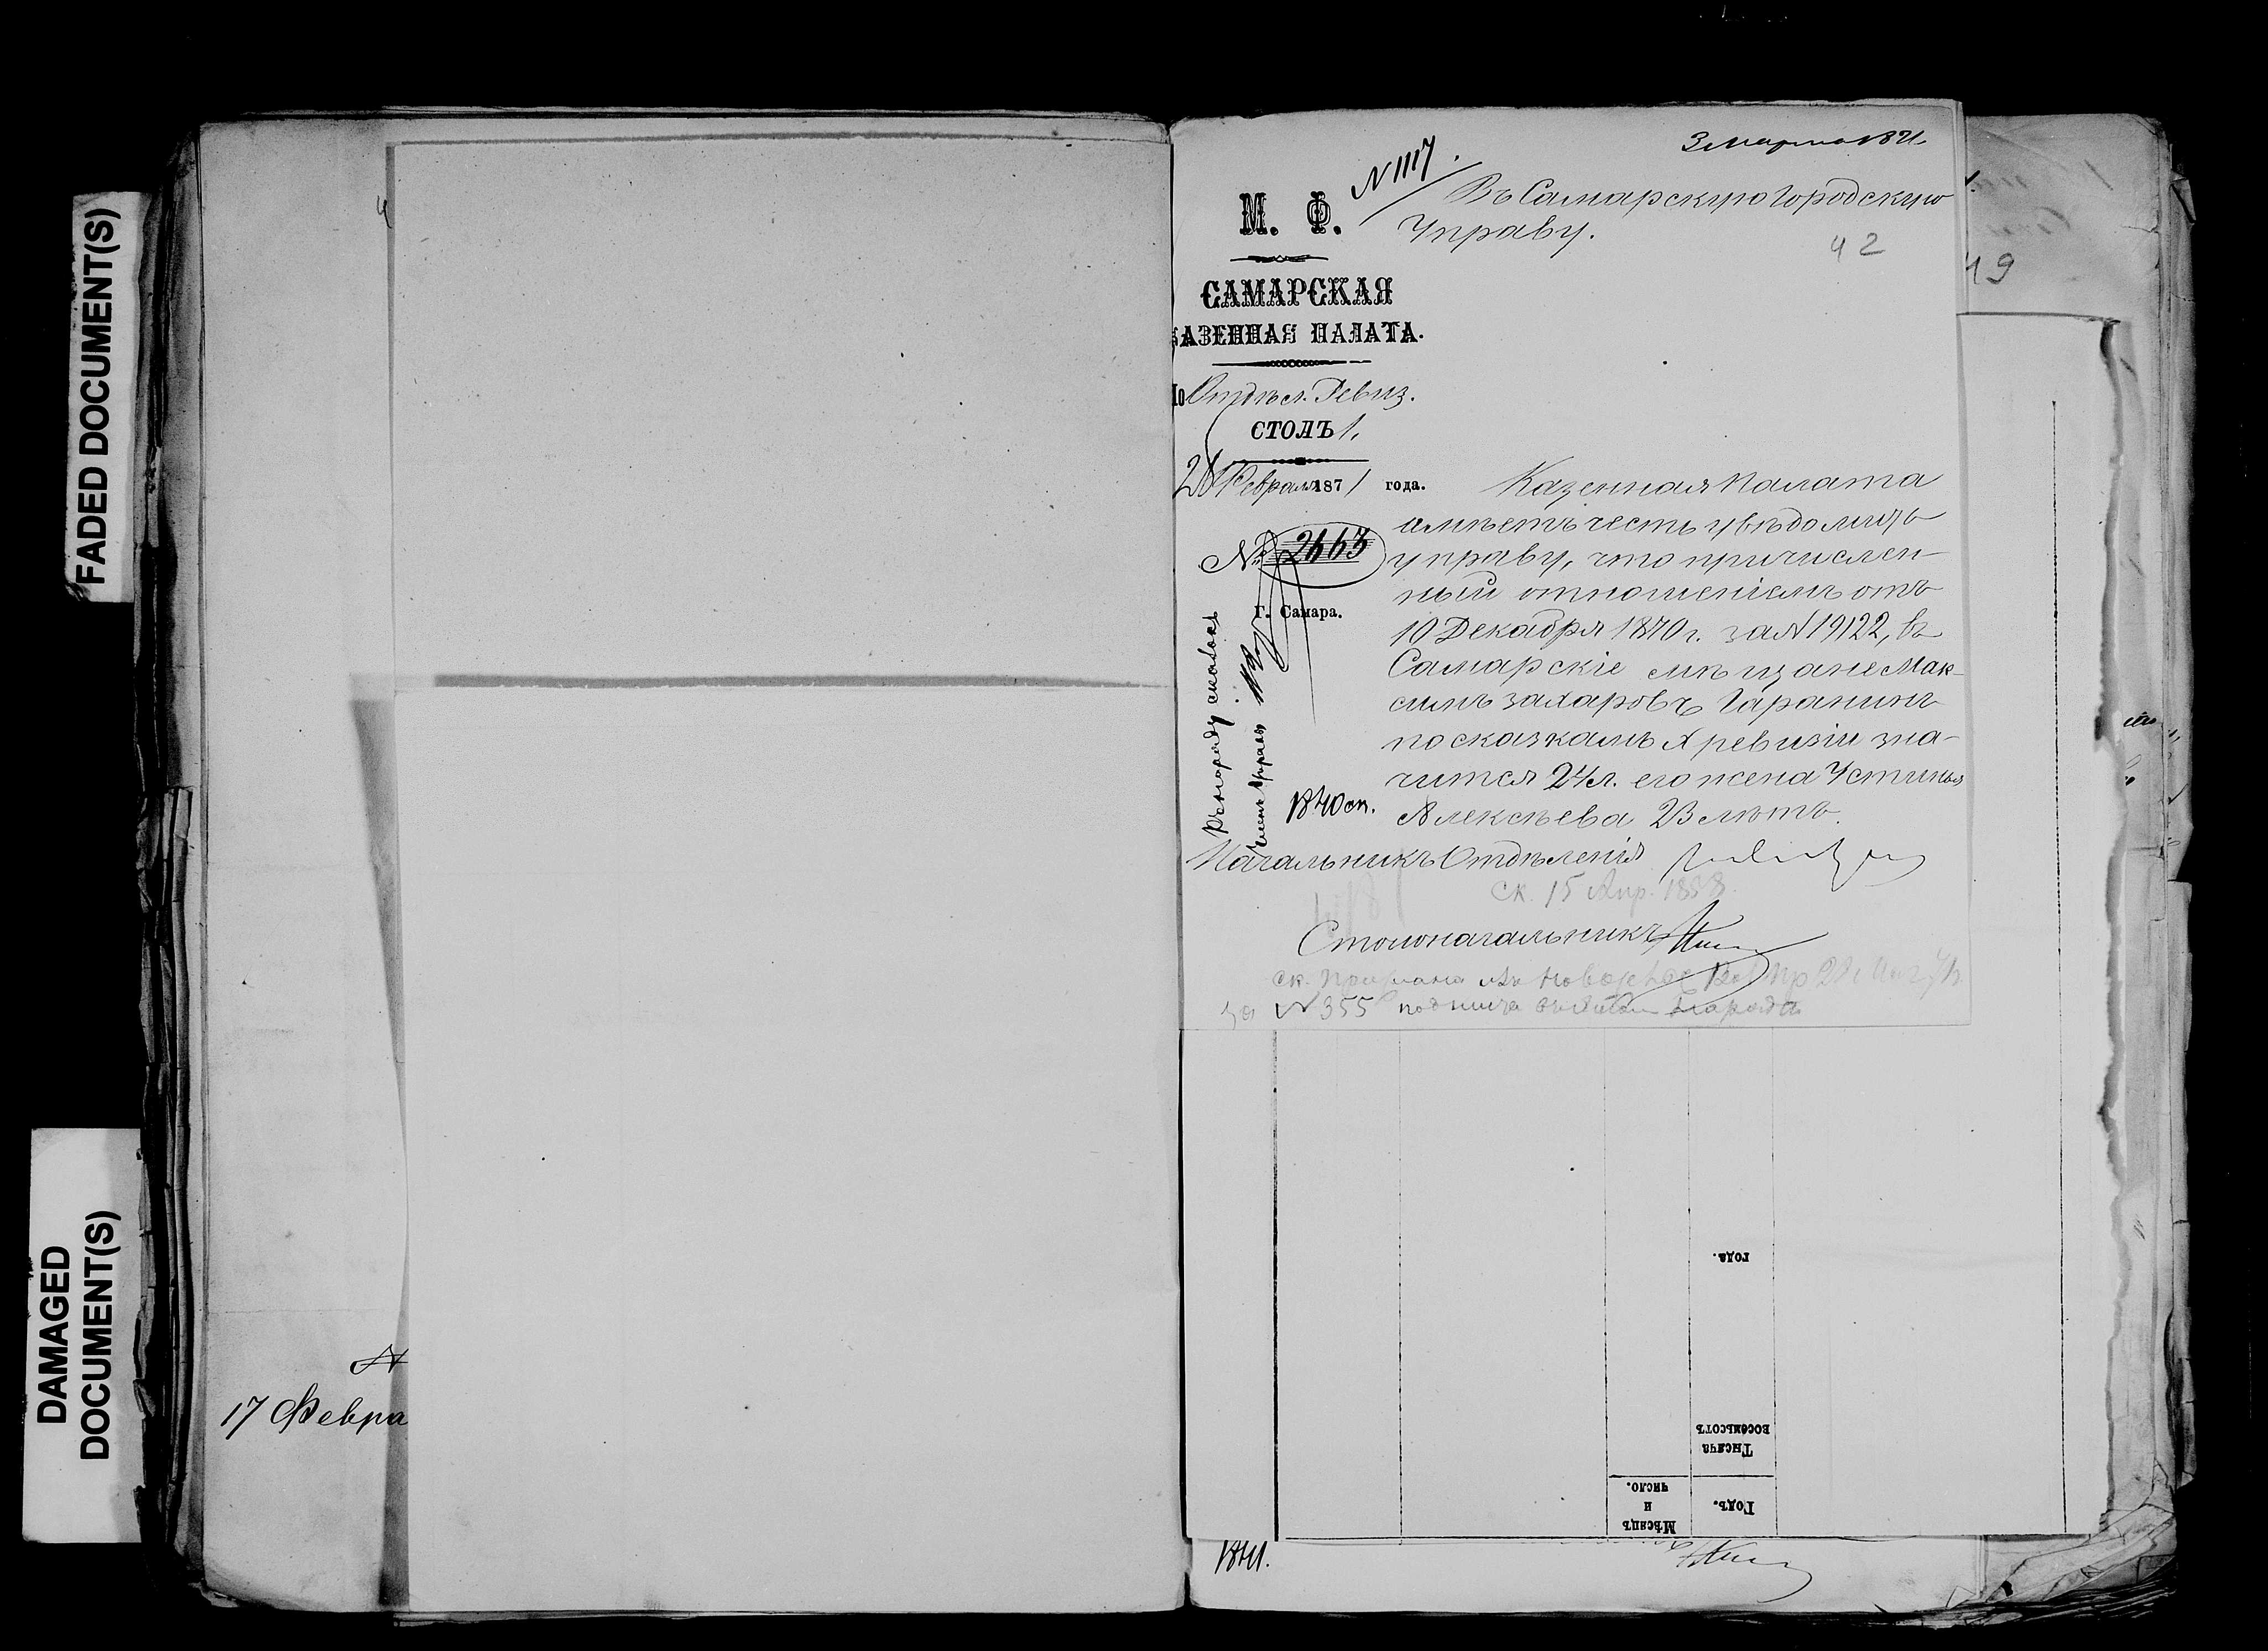 FADED DOCUMENT(S)
DAMAGED
DOCUMENT(S)
17 Февра
3 Марта 1871
N 1117.
Въ Самарскую Городскую
Управу.
42
49
М. Ф.
САМАРСКАЯ
КАЗЕННАЯ ПАЛАТА.
По Отдѣл. Ревиз.
СТОЛЪ 1.
28 Февраля 1871 года.
№ 2663
Г. Самара.
Казенная Палата
имѣетъ честь увѣдомить
управу, что причислен-
ный отношеніемъ отъ
10 Декабря 1870 г. за N 19122, въ
Самарскіе мѣщане Мак-
симъ Захаровъ Гаранинъ
по сказкамъ X ревизіи зна-
чится 24 л. его жена Устинья
Алексѣева 23 лѣтъ.
Къ наряду сказокъ
Членъ Управы
1840 ст.
Начальникъ Отдѣленія
ск. 15 Апр. 1858
Столоначальникъ
за N 355
года.
Тысяча
восемьсотъ
Годъ.
Мѣсяцъ
и
число.
1841.